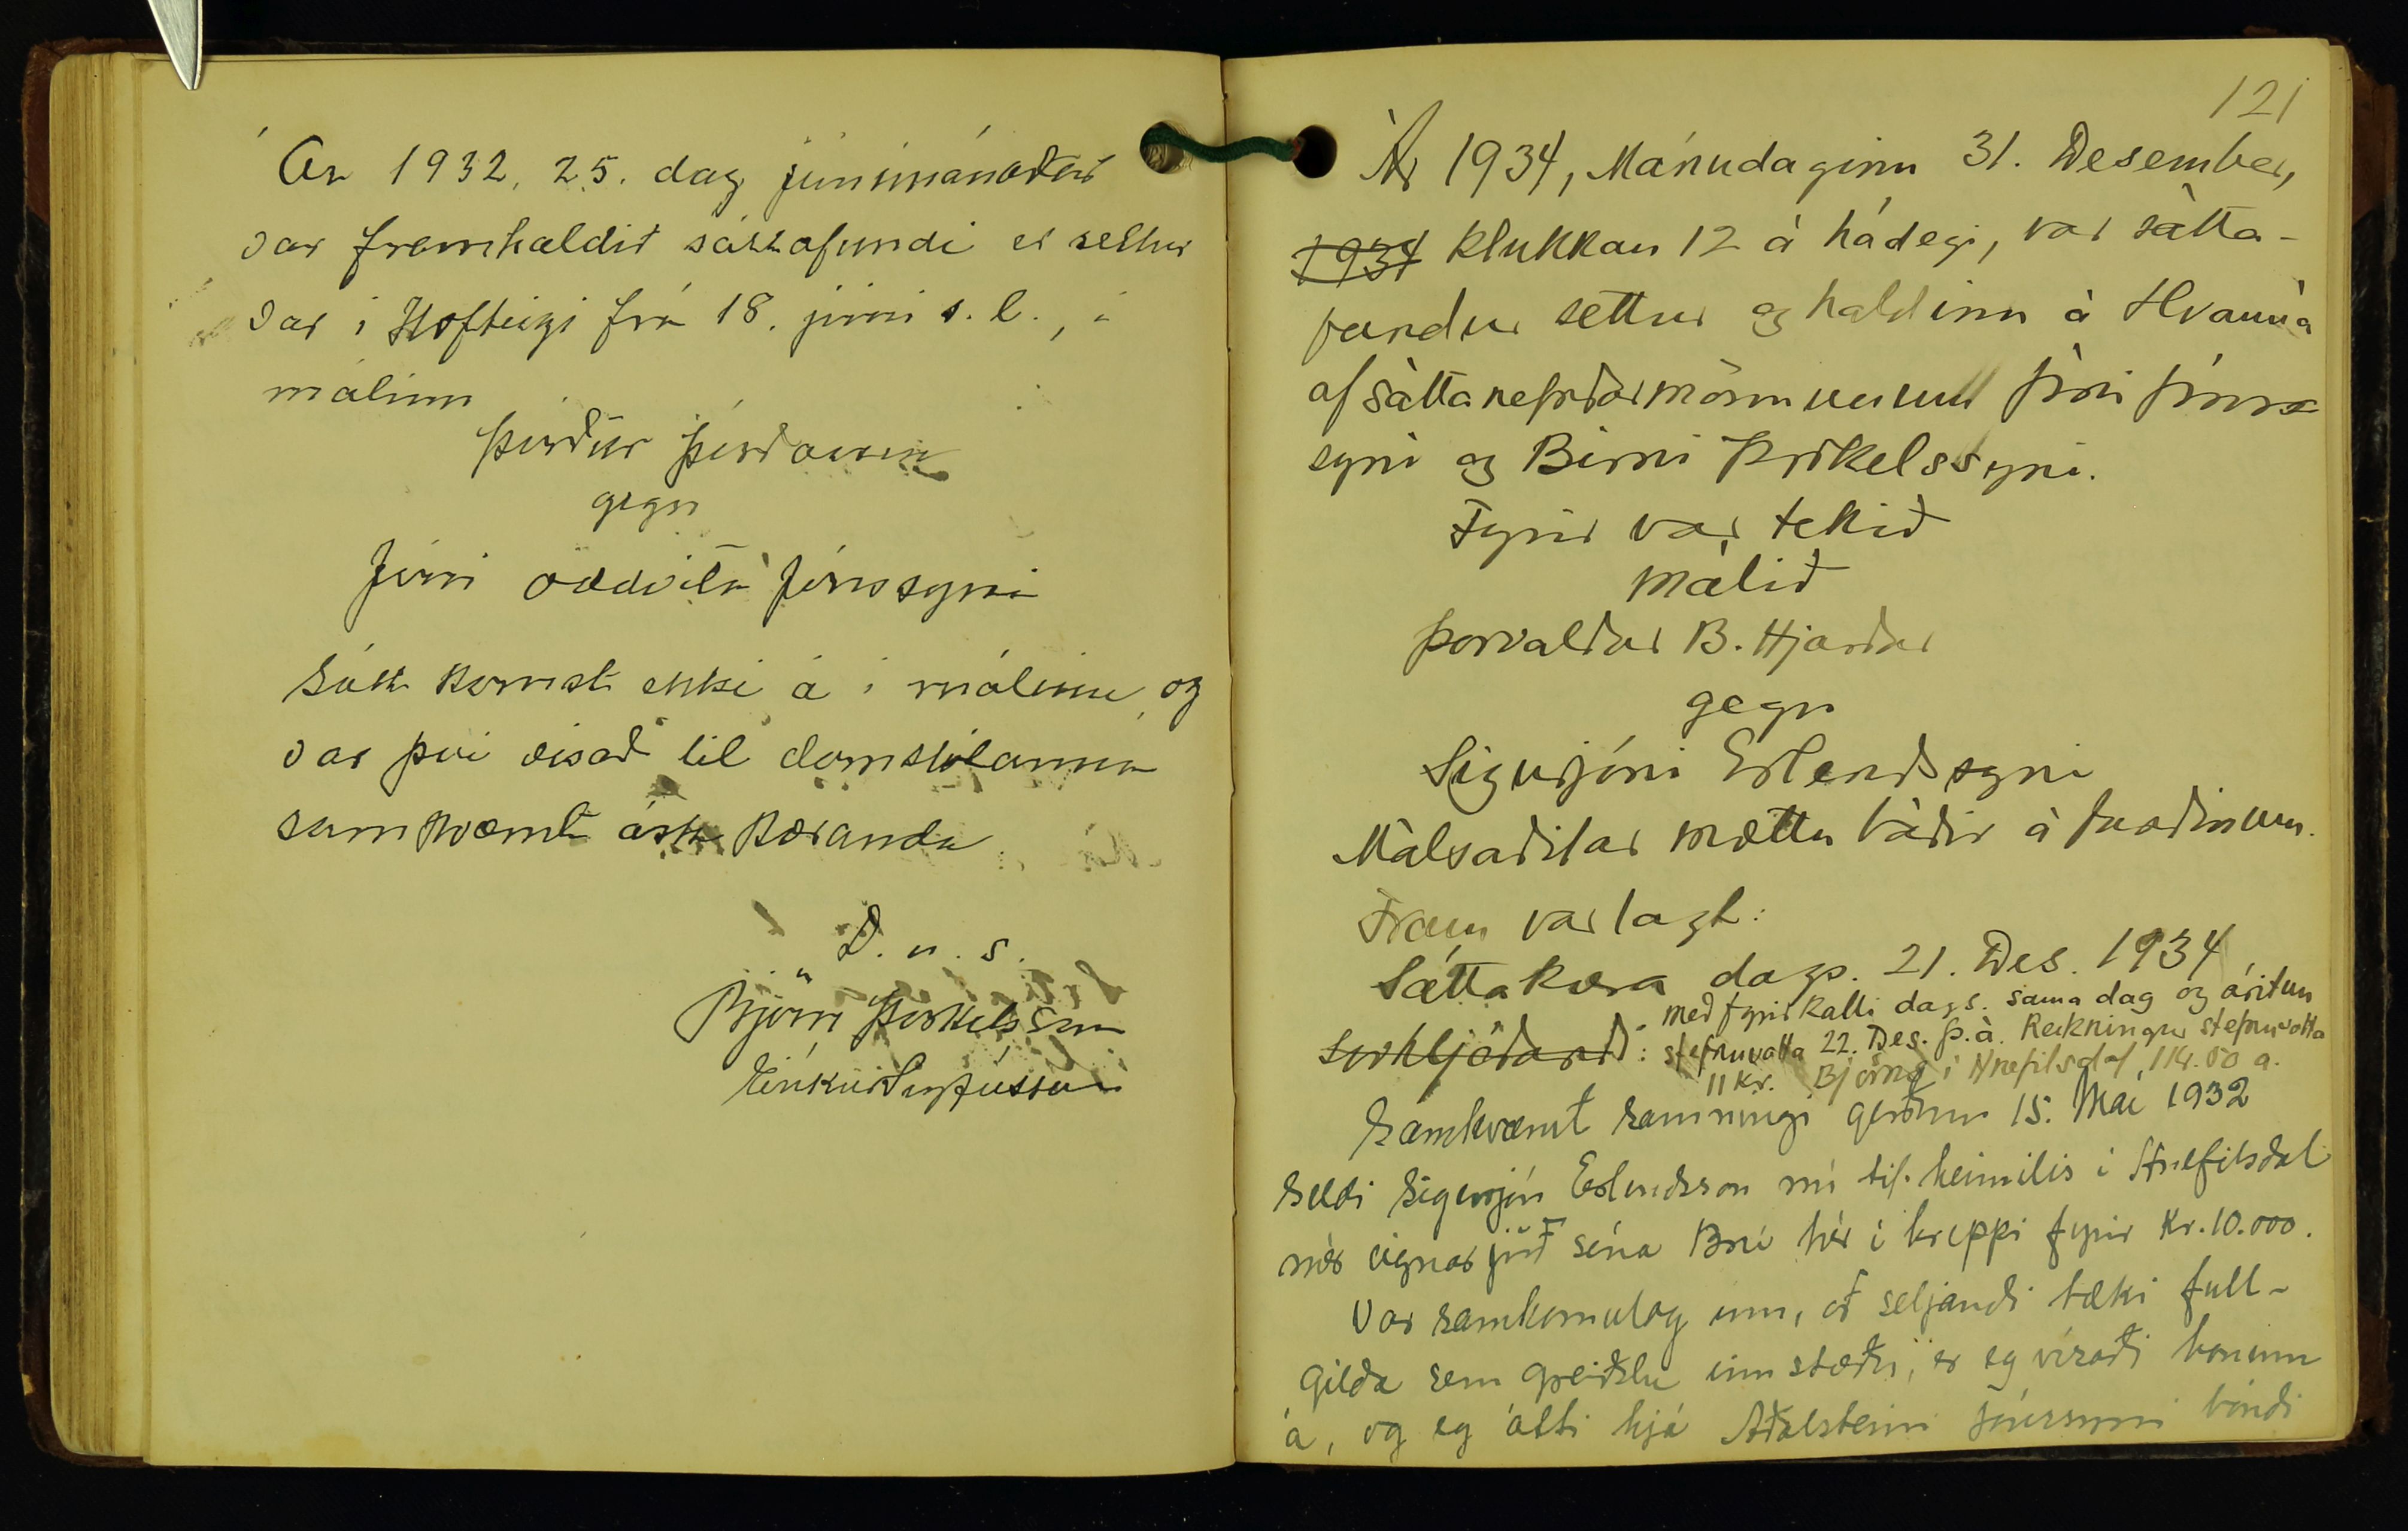 Ár 1932, 25. dag júnímánaðar
var framhaldið sáttafundi er settur
var í Hofteigi frá 18. júní s. l., í
málinu
Þórður Þórðarson
gegn
Jóni oddvita Jónssyni
Sátt komst ekki á í málinu og
var því vísað til domstólanna
samkvæmt ósk kæranda
D. u. s.
Björn Þorkelsson
Eiríkur Sigfússon
121
Ár 1934, Mánudaginn 31. Desember,
1934 klukkan 12 á hádegi, var sátta-
fundur settur og haldinn á Hvanná
af sáttanefndarmönnunum Jóni Jóns
syni og Birni Þorkelssyni.
Fyrir var tekið
málið
Þorvaldur B. Hjarðar
gegn
Sigurjóni Erlendssyni
Málsaðilar mættu báðir á fundinum.
Fram var lagt:
Sáttakæra dags. 21. Des. 1934
með fyrirkalli dags. sama dag og áritun
svohljóðandi: stefnuvotta 22. Des. þ.á. Reikningur stefnuvotta
11 kr. Björns í Hnefilsdal, 1 kr. 50 a.
Samkvæmt samningi gerðum 15. Maí 1932
seldi Sigurjón Erlendsson nú til heimilis í Hnefilsdal
mér eignarjörð sína Brú hér í hreppi fyrir Kr. 10.000.
Var samkomulag um, að seljandi tæki full-
gilda sem greiðslu innstæðu, er eg vísaði honum
á, og eg átti hjá Aðalsteini Jónssyni bóndi